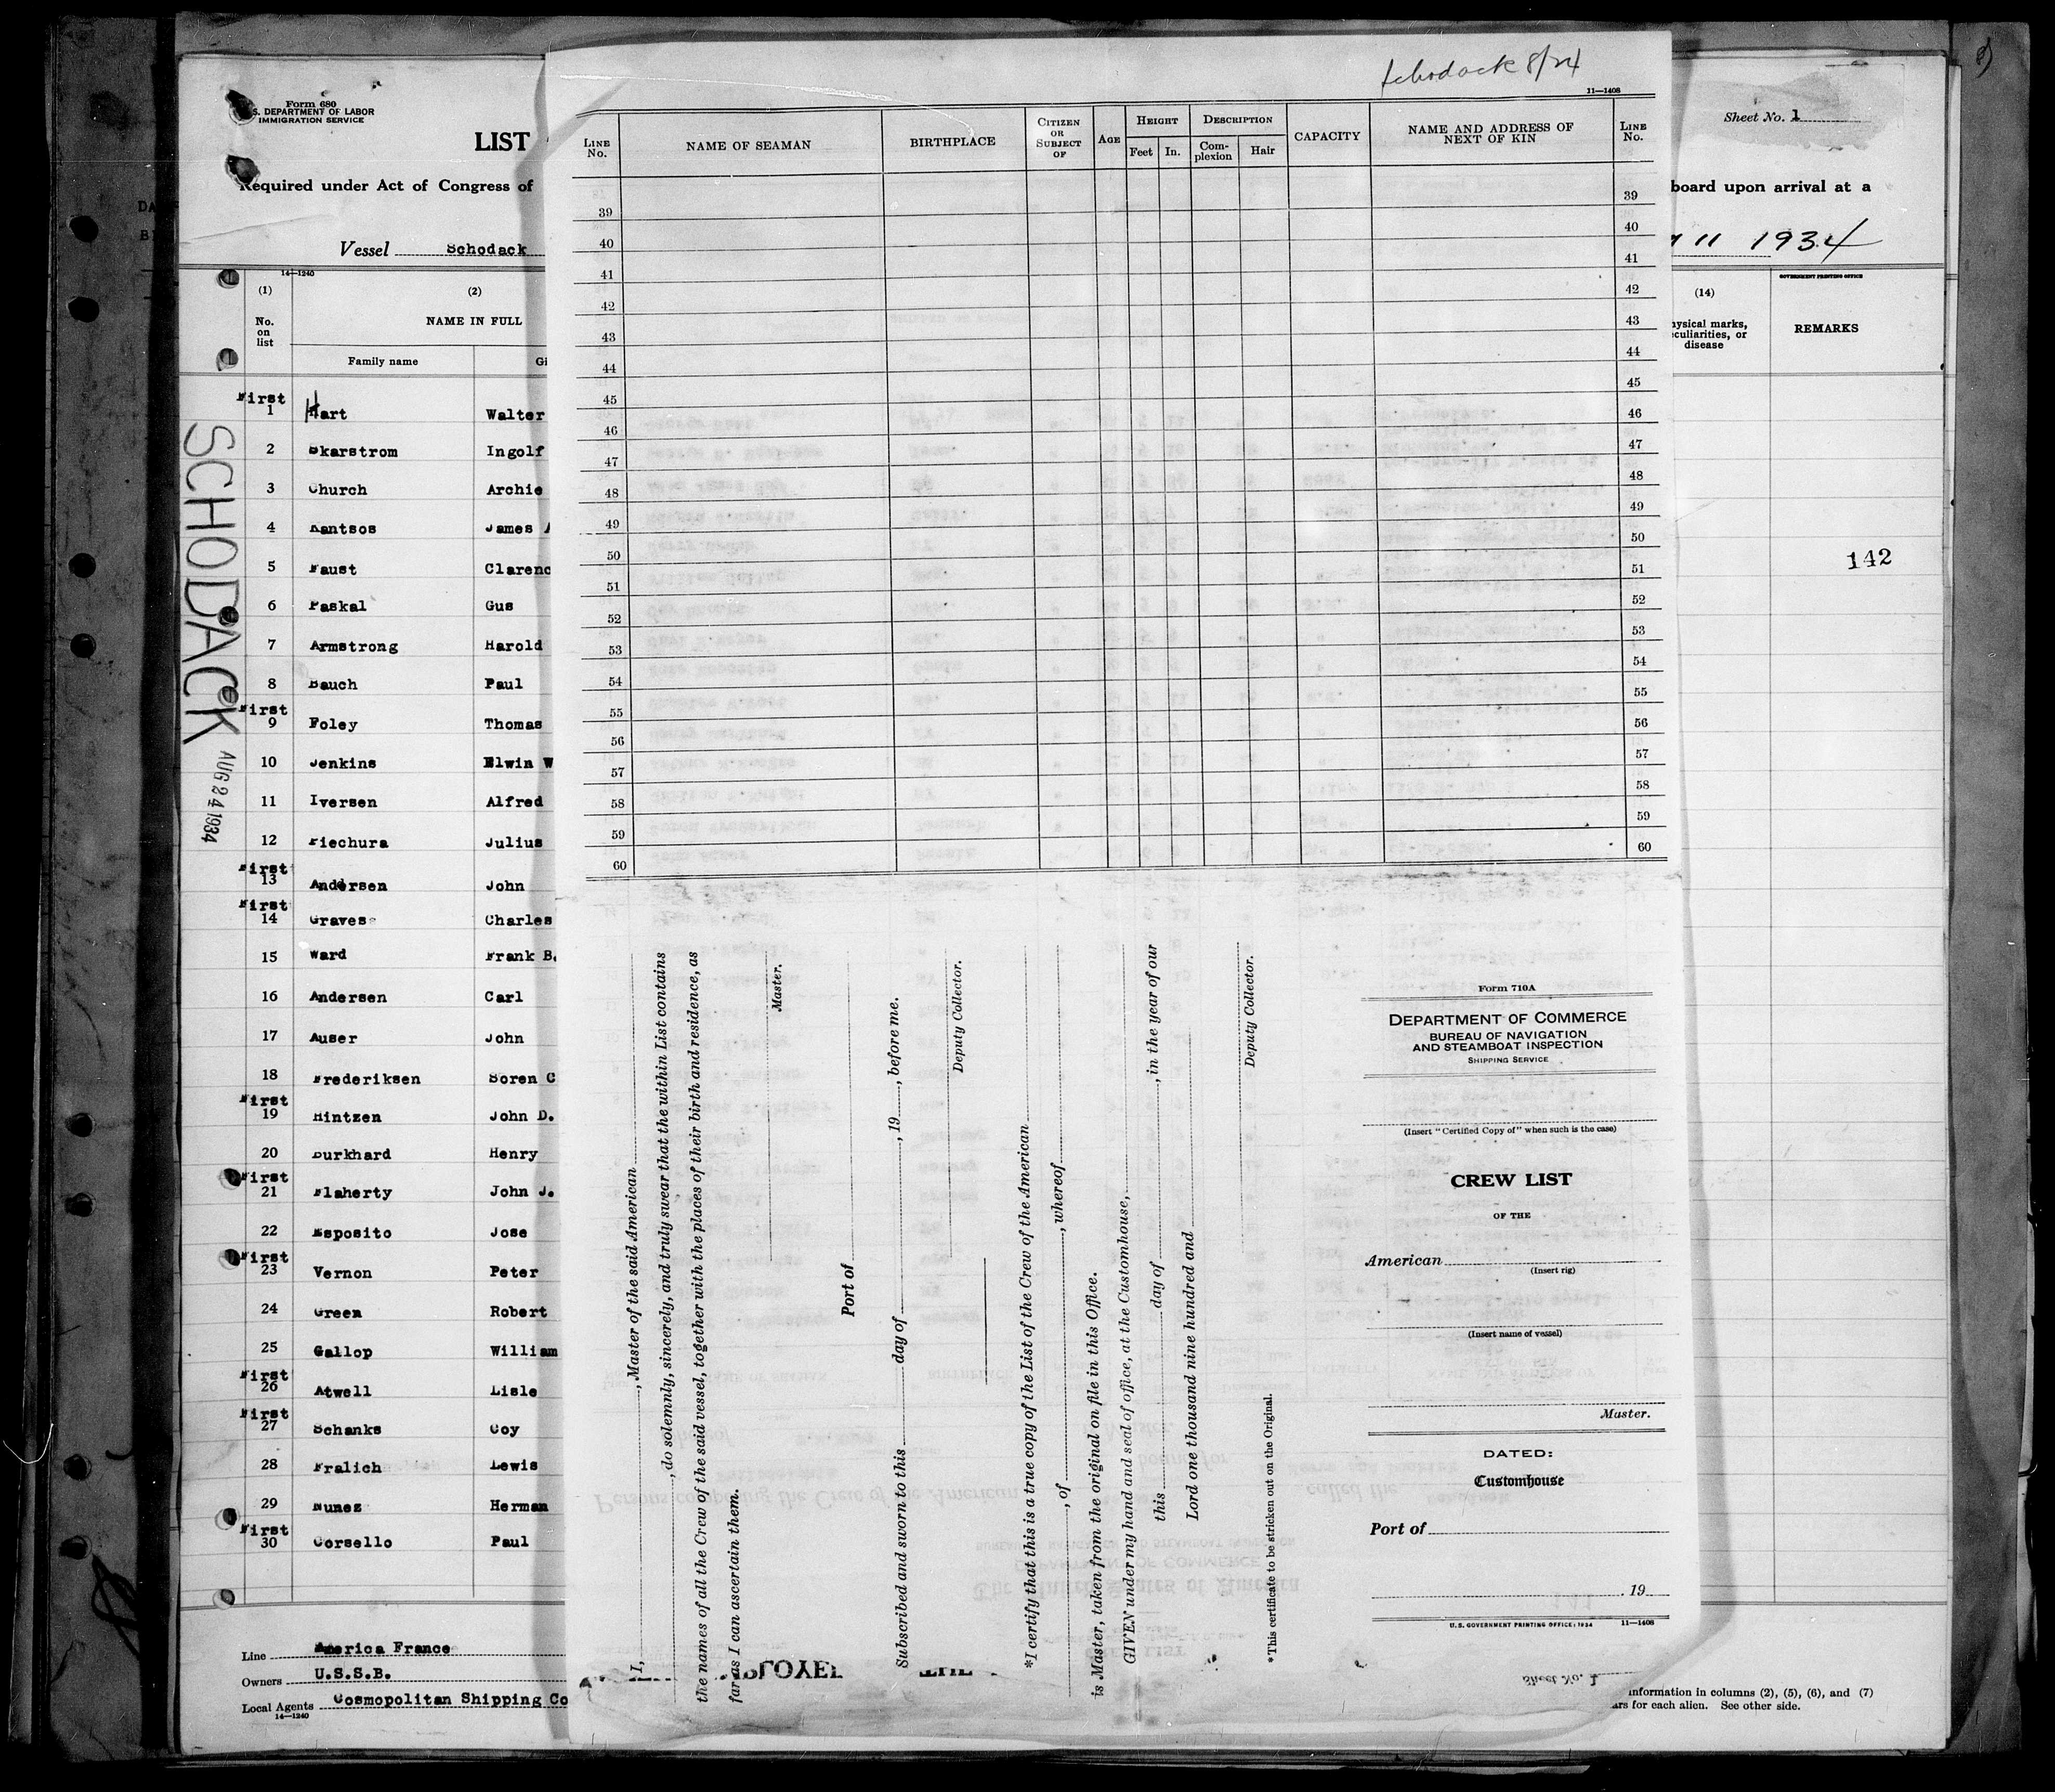 Schodack 8/24
11—1408
LINE No. NAME OF SEAMAN BIRTHPLACE CITIZEN OR SUBJECT OF AGE HEIGHT Feet In. DESCRIPTION Complexion Hair CAPACITY NAME AND ADDRESS OF NEXT OF KIN LINE No.
39 39
40 40
41 41
42 42
43 43
44 44
45 45
46 46
47 47
48 48
49 49
50 50
51 51
52 52
53 53
54 54
55 55
56 56
57 57
58 58
59 59
60 60
I, , Master of the said American
, do solemnly, sincerely, and truly swear that the within List contains
the names of all the Crew of the said vessel, together with the places of their birth and residence, as
far as I can ascertain them.
Master.
Port of
Subscribed and sworn to this day of , 19 , before me.
Deputy Collector.
*I certify that this is a true copy of the List of the Crew of the American
, of , whereof
is Master, taken from the original on file in this Office.
GIVEN under my hand and seal of office, at the Customhouse,
this day of , in the year of our
Lord one thousand nine hundred and
Deputy Collector.
*This certificate to be stricken out on the Original.
Form 710A
DEPARTMENT OF COMMERCE
BUREAU OF NAVIGATION
AND STEAMBOAT INSPECTION
SHIPPING SERVICE
(Insert "Certified Copy of" when such is the case)
CREW LIST
OF THE
American
(Insert rig)
(Insert name of vessel)
Master.
DATED:
Customhouse
Port of
, 19
U. S. GOVERNMENT PRINTING OFFICE: 1934 11—1408
Form 680
U. S. DEPARTMENT OF LABOR
IMMIGRATION SERVICE
LIST
Required under Act of Congress of
Vessel Schodack
14—1240
(1) (2)
No. on list NAME IN FULL
Family name Gi
First
1 Hart Walter
2 Skarstrom Ingolf
3 Church Archie
4 Kantsos James A
5 Faust Clarenc
6 Paskal Gus
7 Armstrong Harold
8 Bauch Paul
First
9 Foley Thomas
10 Jenkins Elwin W
11 Iversen Alfred
12 Piechura Julius
First
13 Andersen John
First
14 Graves Charles
15 Ward Frank B.
16 Andersen Carl
17 Auser John
18 Frederiksen Soren C
First
19 Hintzen John D.
20 Burkhard Henry
First
21 Flaherty John J.
22 Esposito Jose
First
23 Vernon Peter
24 Green Robert
25 Gallop William
First
26 Atwell Lisle
First
27 Schanks Coy
28 Fralich Lewis
29 Nunez Herman
First
30 Corsello Paul
Line America France
Owners U.S.S.B.
Local Agents Cosmopolitan Shipping Co
14—1240
SCHODACK
AUG 24 1934
Sheet No. 1
board upon arrival at a
11 1934
GOVERNMENT PRINTING OFFICE
(14)
hysical marks,
eculiarities, or
disease
REMARKS
142
Sheet No. 1
information in columns (2), (5), (6), and (7)
ars for each alien. See other side.